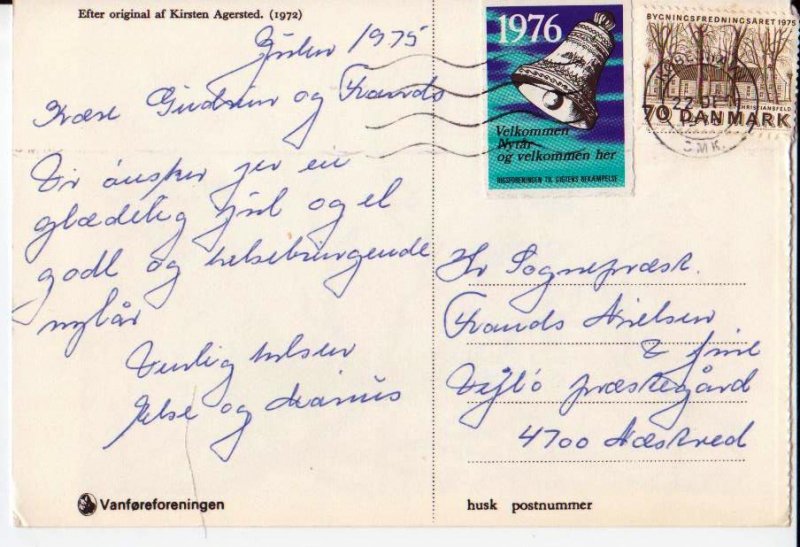 Efter original af Kirsten Agersted. (1972)
Julen 1975
Kære Gudrun og Frands
Vi ønsker jer en
glædelig jul og et
godt og helsebringende
nytår
Venlig hilsen
Else og Marius
Vanføreforeningen
1976
Velkommen
Nytår
og velkommen her
RIGSFORENINGEN TIL GIGTENS BEKÆMPELSE
BYGNINGSFREDNINGSÅRET 1975
CHRISTIANSFELD
70 DANMARK
22 DE
OMK.
Hr Sognepræst.
Frands Nielsen
& frue
Vejlø præstegård
4700 Næstved
husk postnummer